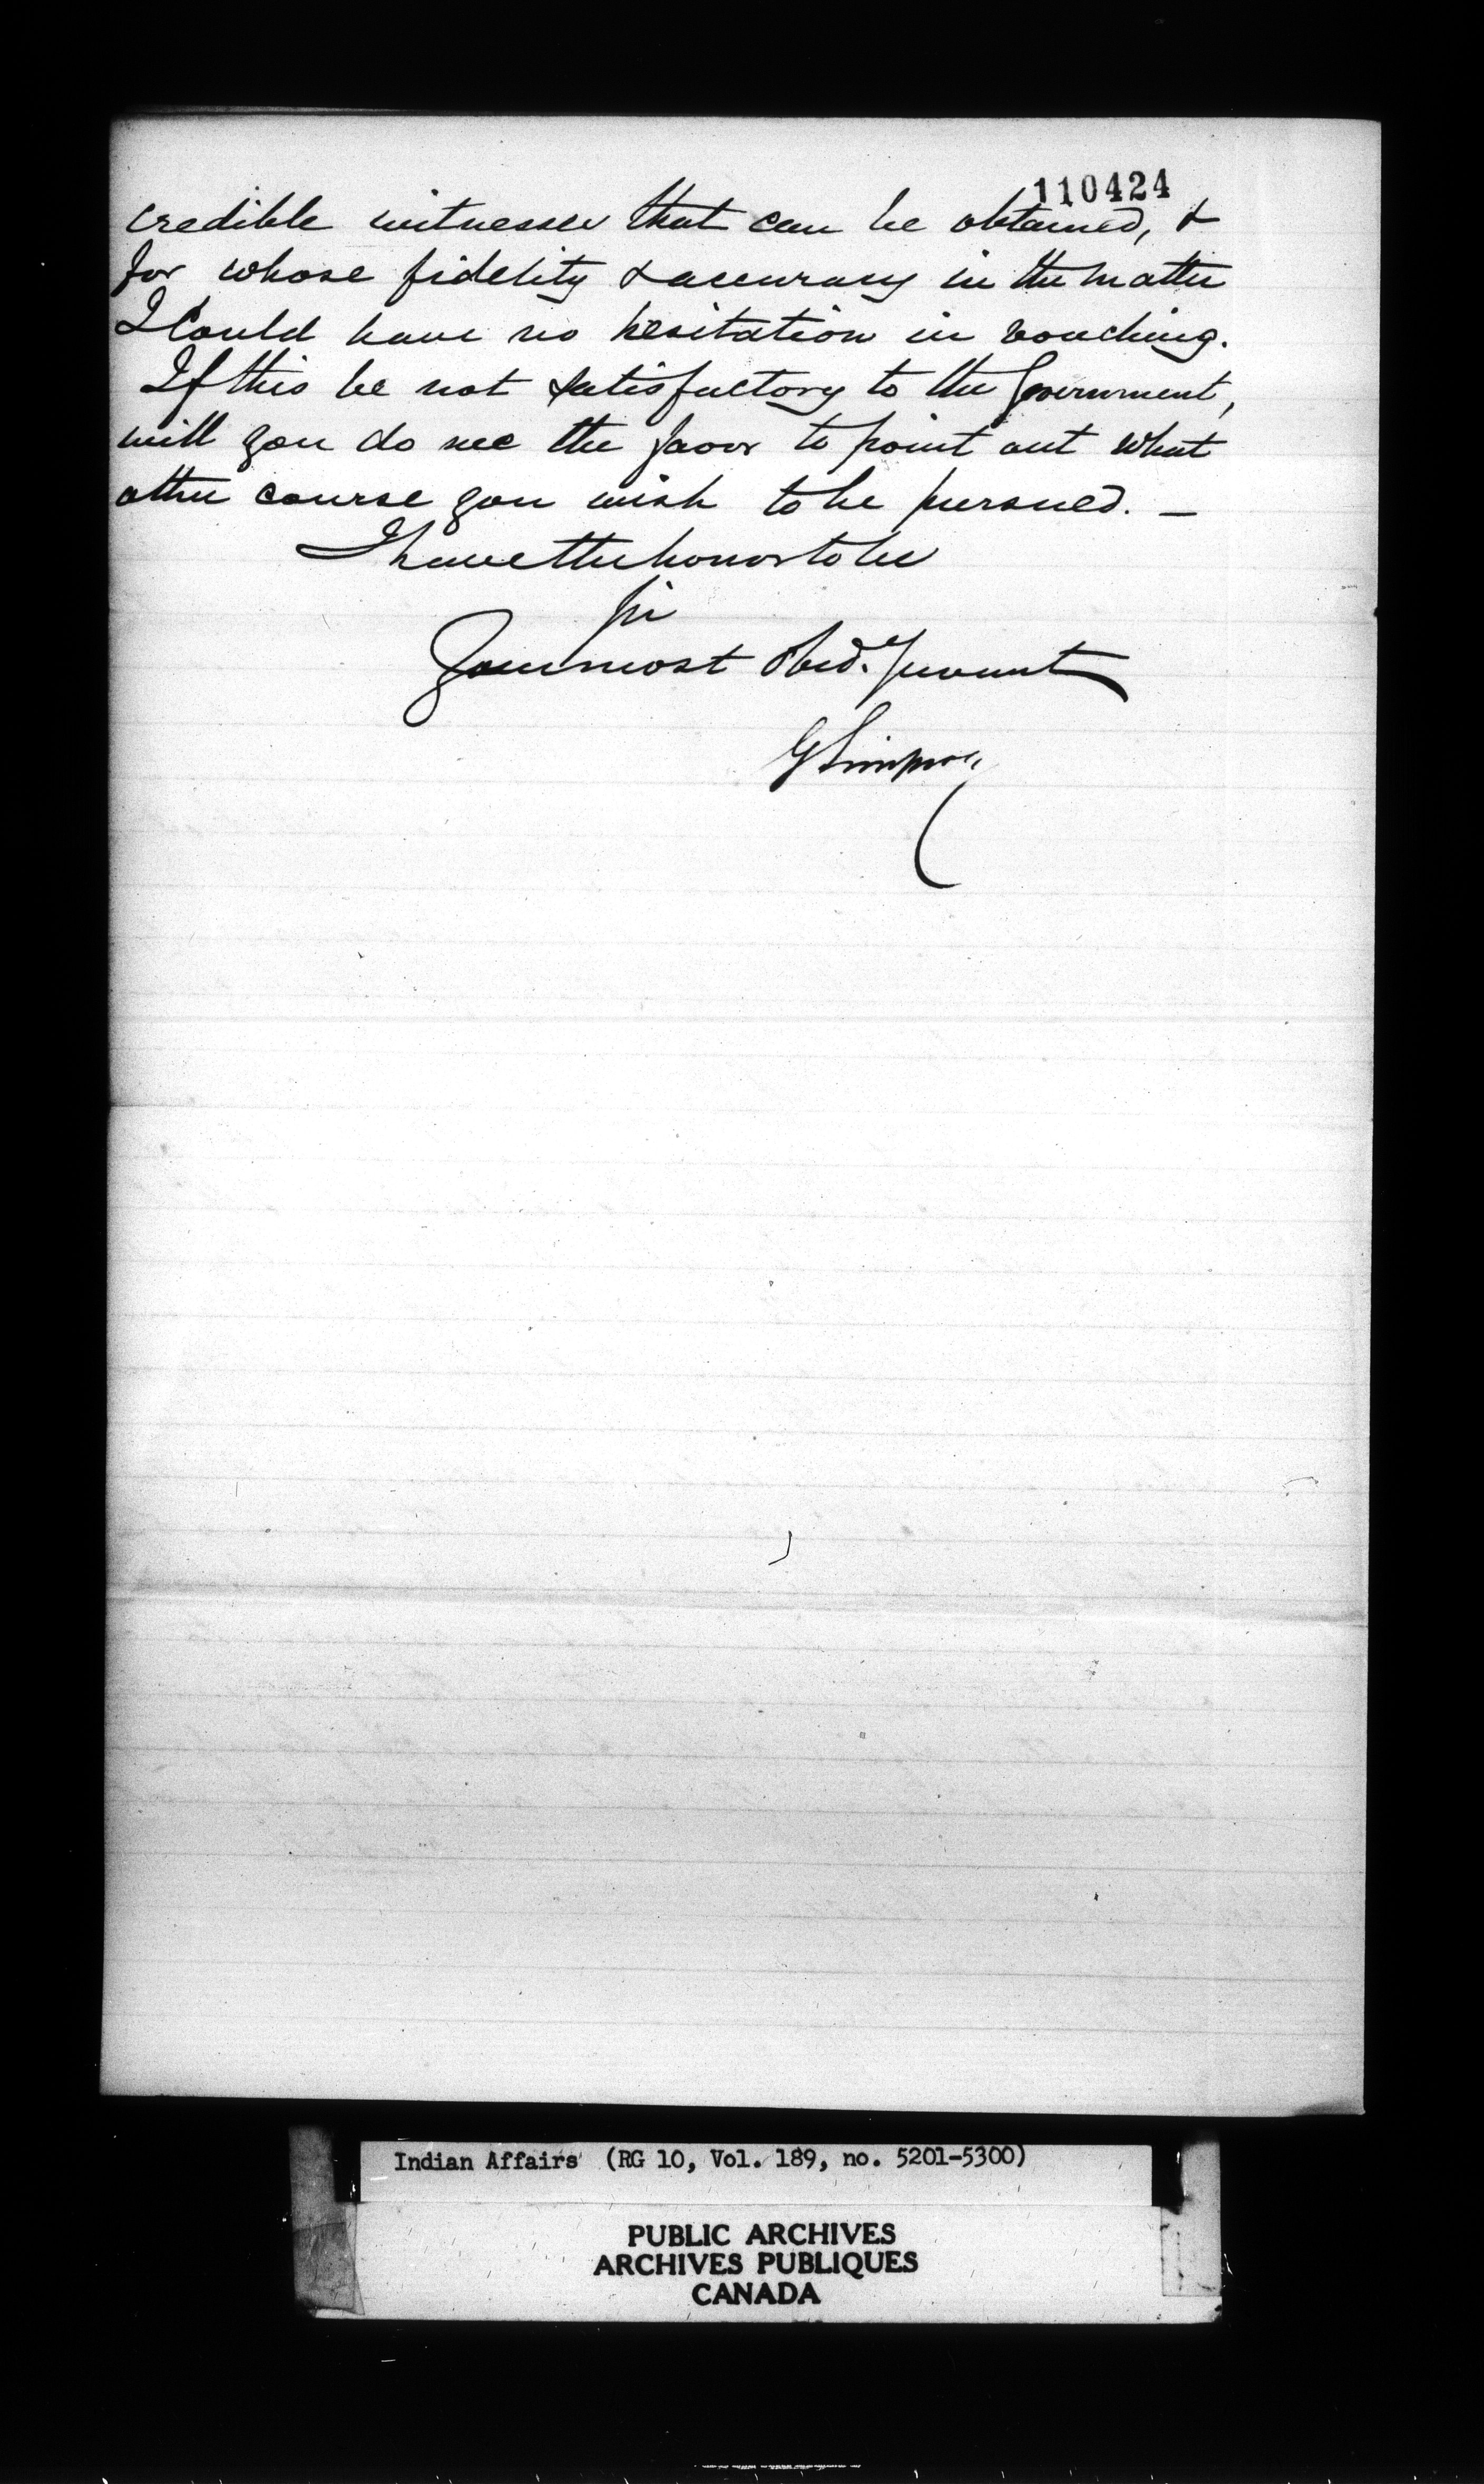 110424
credible witnesses that can be obtained, &
for whose fidelity & accuracy in the matter
I Could have no hesitation in vouching.
If this be not satisfactory to the Government,
will you do me the favor to point out what
other course you wish to be pursued. —
I have the honor to be
Sir
Your most Obed. Servant
G Simpson
Indian Affairs (RG 10, Vol. 189, no. 5201-5300)
PUBLIC ARCHIVES
ARCHIVES PUBLIQUES
CANADA